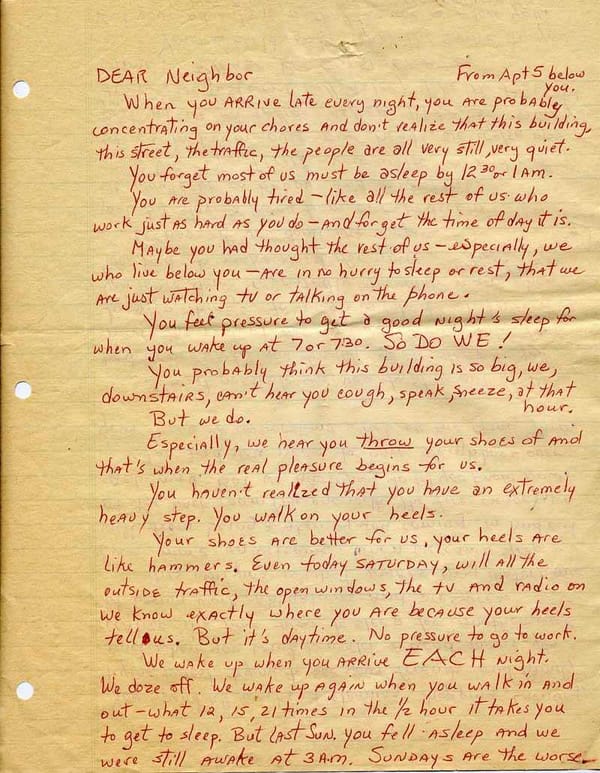 DEAR Neighbor From Apt 5 below
you.
When you ARRIVE LATE every night, you are probably
concentrating on your chores and don't realize that this building,
this street, the traffic, the people are all very still, very quiet.
You forget most of us must be asleep by 12 30 or 1 AM.
You are probably tired - like all the rest of us who
work just as hard as you do - and forget the time of day it is.
Maybe you had thought the rest of us - especially, we
who live below you - are in no hurry to sleep or rest, that we
are just watching TV or talking on the phone.
You feel pressure to get a good night's sleep for
when you wake up at 7 or 7:30. SO DO WE!
You probably think this building is so big, we,
downstairs, can't hear you cough, speak, sneeze, at that
hour.
But we do.
Especially, we hear you throw your shoes of and
that's when the real pleasure begins for us.
You haven't realized that you have an extremely
heavy step. You walk on your heels.
Your shoes are better for us, your heels are
like hammers. Even today SATURDAY, will all the
outside traffic, the open windows, the TV and radio on
we know exactly where you are because your heels
tell us. But it's daytime. No pressure to go to work.
We wake up when you ARRIVE EACH night.
We doze off. We wake up again when you walk in and
out - what 12, 15, 21 times in the 1/2 hour it takes you
to get to sleep. But last Sun. you fell asleep and we
were still awake at 3 AM. SUNDAYS are the worse.